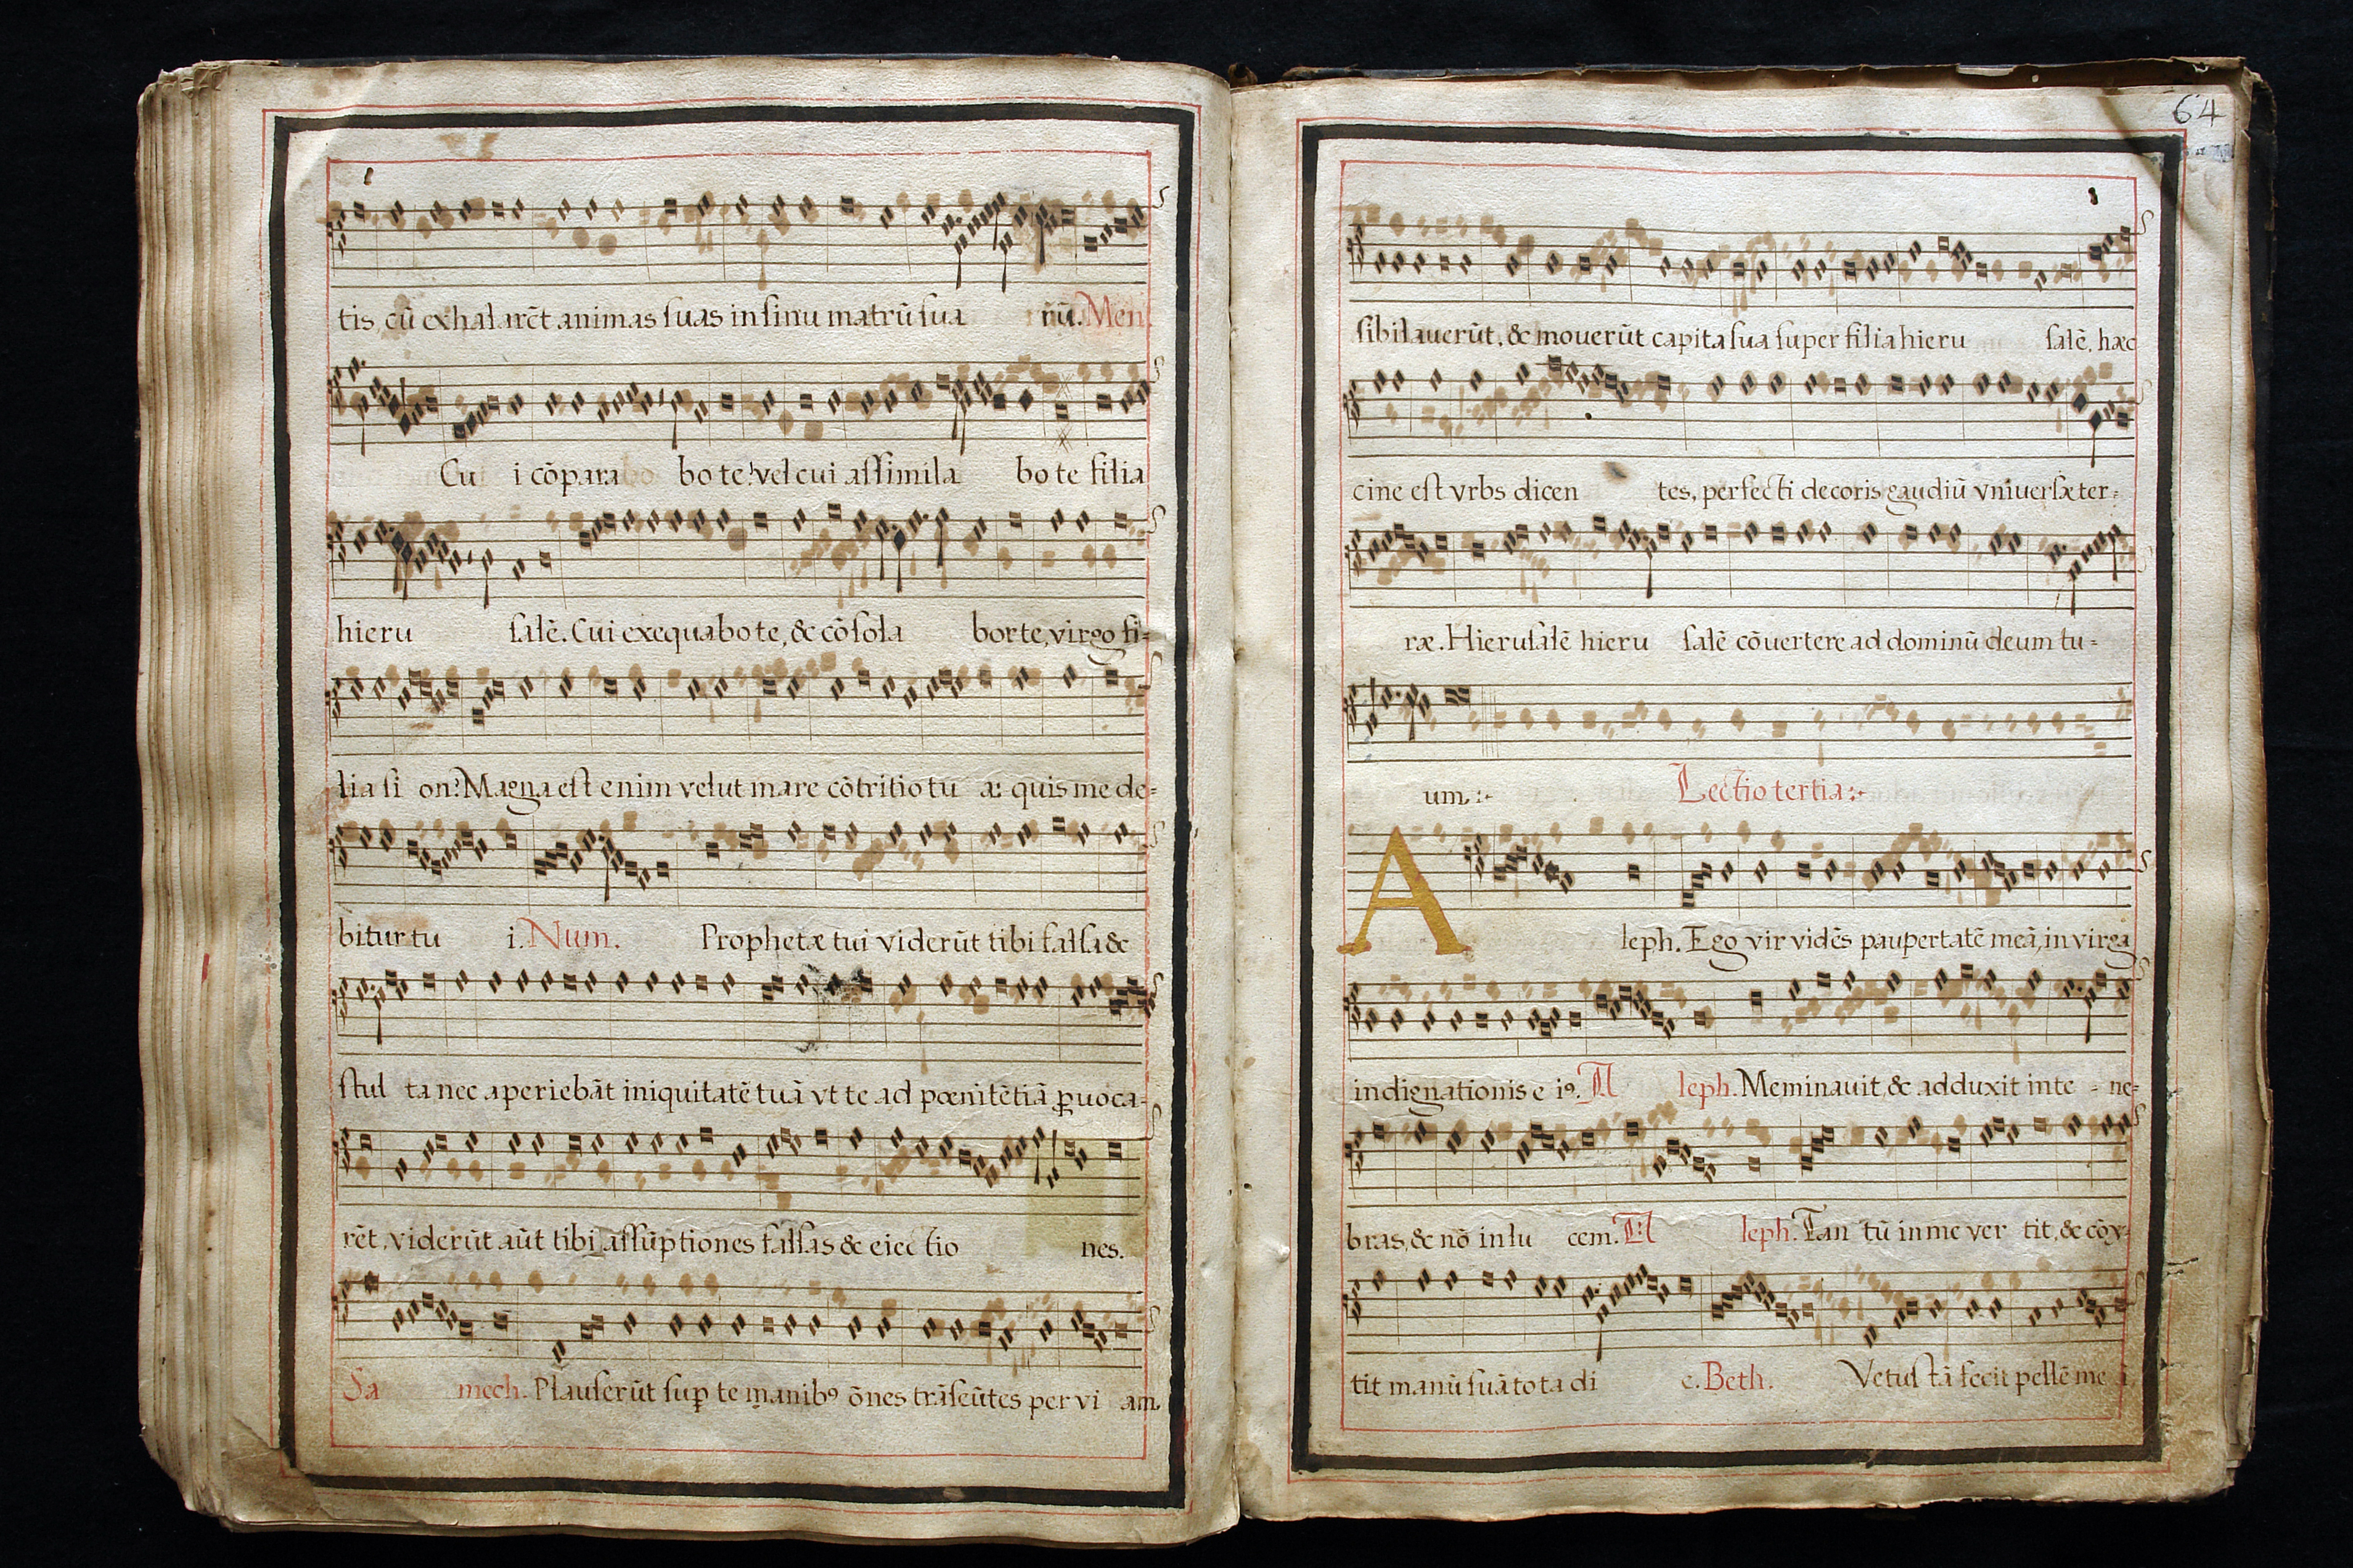 tis, cū exhalarēt animas suas in sinu matrū sua rū. Men.
Cu i cōpara bo te? vel cui assimila bo te filia
hieru salē. Cui exequabo te, & cōsola bor te, virgo fi-
lia si on? Magna est enim velut mare cōtritio tu a: quis me de-
bitur tu i. Num. Prophetæ tui viderūt tibi falsa &
stul ta nec aperiebāt iniquitatē tuā vt te ad pœnitētiā ꝓuoca-
rēt, viderūt aūt tibi assūptiones falsas & eiectio nes.
Sa mech. Plauserūt suꝑ te manibꝰ ōnes trāseūtes per vi am.
64
sibilauerūt, & mouerūt capita sua super filia hieru salē, hæc
cine est vrbs dicen tes, perfecti decoris gaudiū vniuersæ ter-
ræ. Hierusalē hieru salē cōuertere ad dominū deum tu-
um. Lectio tertia
A leph. Ego vir vidēs paupertatē meā, in virga
indignationis e iꝰ. A leph. Me minauit, & adduxit in te - ne-
bras, & nō in lu cem. A leph. Tan tū in me ver tit, & cōv-
tit manū suā tota di e. Beth. Vetus tā fecit pellē me ā,